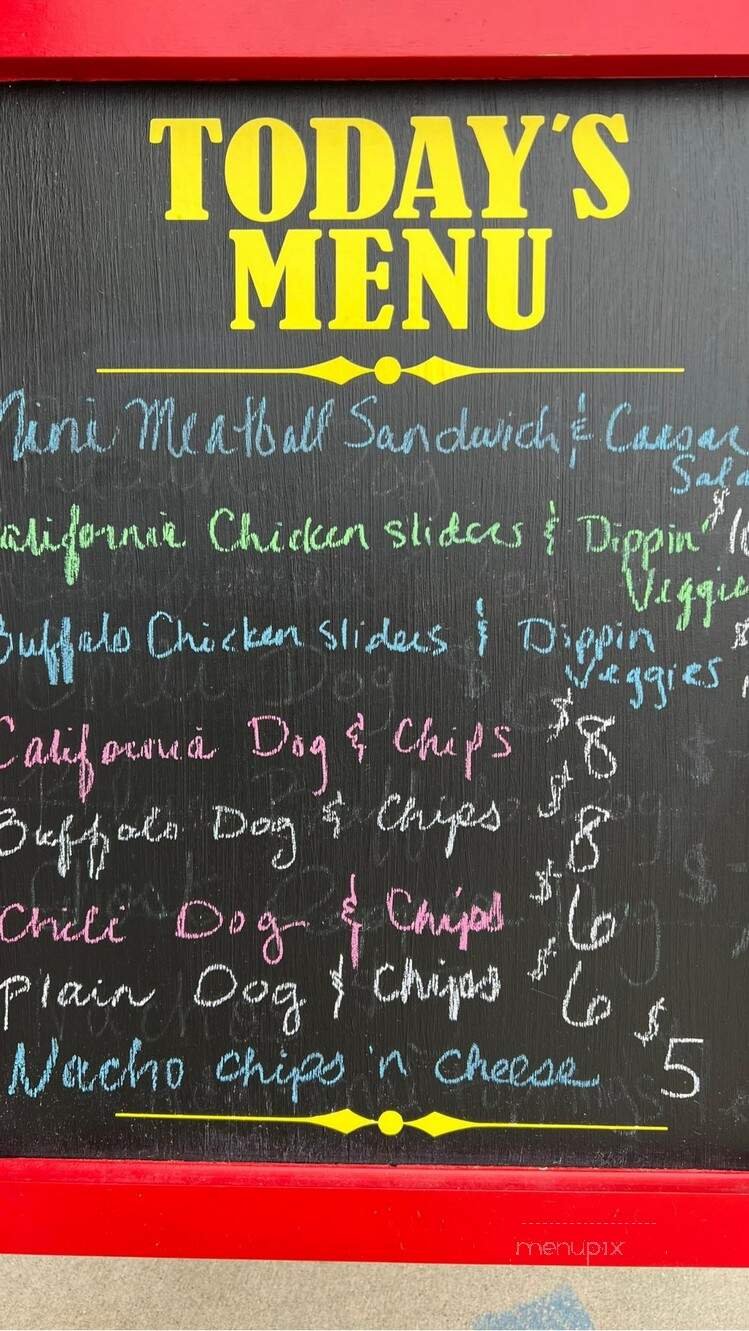 TODAY'S
MENU
Mini Meatball Sandwich & Caesar
Sala
California Chicken sliders & Dippin' $10
Veggies
Buffalo Chicken sliders & Dippin $
Veggies
California Dog & Chips $8
Buffalo Dog & Chips $8
Chili Dog & Chips $6
Plain Dog & Chips $6
Nacho chips 'n cheese $5
menupix